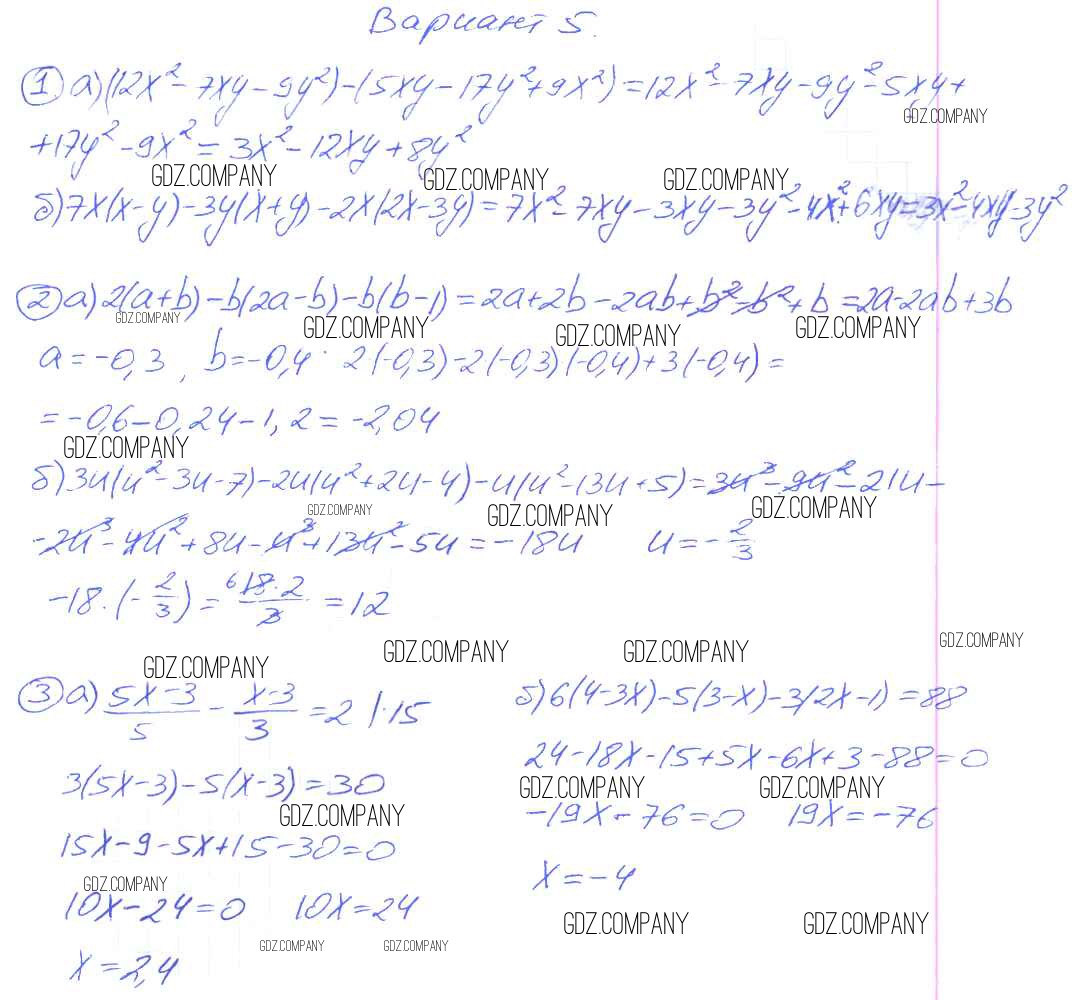 Вариант 5.
1 а) (12x² - 7xy - 9y²) - (5xy - 17y² + 9x²) = 12x² - 7xy - 9y² - 5xy +
GDZ.COMPANY
+ 17y² - 9x² = 3x² - 12xy + 8y²
GDZ.COMPANY GDZ.COMPANY GDZ.COMPANY
б) 7x(x - y) - 3y(x + y) - 2x(2x - 3y) = 7x² - 7xy - 3xy - 3y² - 4x² + 6xy = 3x² - 4xy - 3y²
2 а) 2(a + b) - b(2a - b) - b(b - 1) = 2a + 2b - 2ab + b² - b² + b = 2a - 2ab + 3b
GDZ.COMPANY GDZ.COMPANY GDZ.COMPANY GDZ.COMPANY
a = -0,3 , b = -0,4 · 2(-0,3) - 2(-0,3)(-0,4) + 3(-0,4) =
= -0,6 - 0,24 - 1,2 = -2,04
GDZ.COMPANY
б) 3u(u² - 3u - 7) - 2u(u² + 2u - 4) - u(u² - 13u + 5) = 3u³ - 9u² - 21u -
GDZ.COMPANY GDZ.COMPANY GDZ.COMPANY
- 2u³ - 4u² + 8u - u³ + 13u² - 5u = -18u u = -2/3
-18 · (-2/3) = 6 18·2/3 = 12
GDZ.COMPANY GDZ.COMPANY GDZ.COMPANY GDZ.COMPANY
3 а) (5x - 3)/5 - (x - 3)/3 = 2 | · 15
3(5x - 3) - 5(x - 3) = 30
GDZ.COMPANY
15x - 9 - 5x + 15 - 30 = 0
GDZ.COMPANY
10x - 24 = 0 10x = 24
GDZ.COMPANY GDZ.COMPANY
x = 2,4
б) 6(4 - 3x) - 5(3 - x) - 3(2x - 1) = 88
24 - 18x - 15 + 5x - 6x + 3 - 88 = 0
GDZ.COMPANY GDZ.COMPANY
-19x - 76 = 0 19x = -76
x = -4
GDZ.COMPANY GDZ.COMPANY